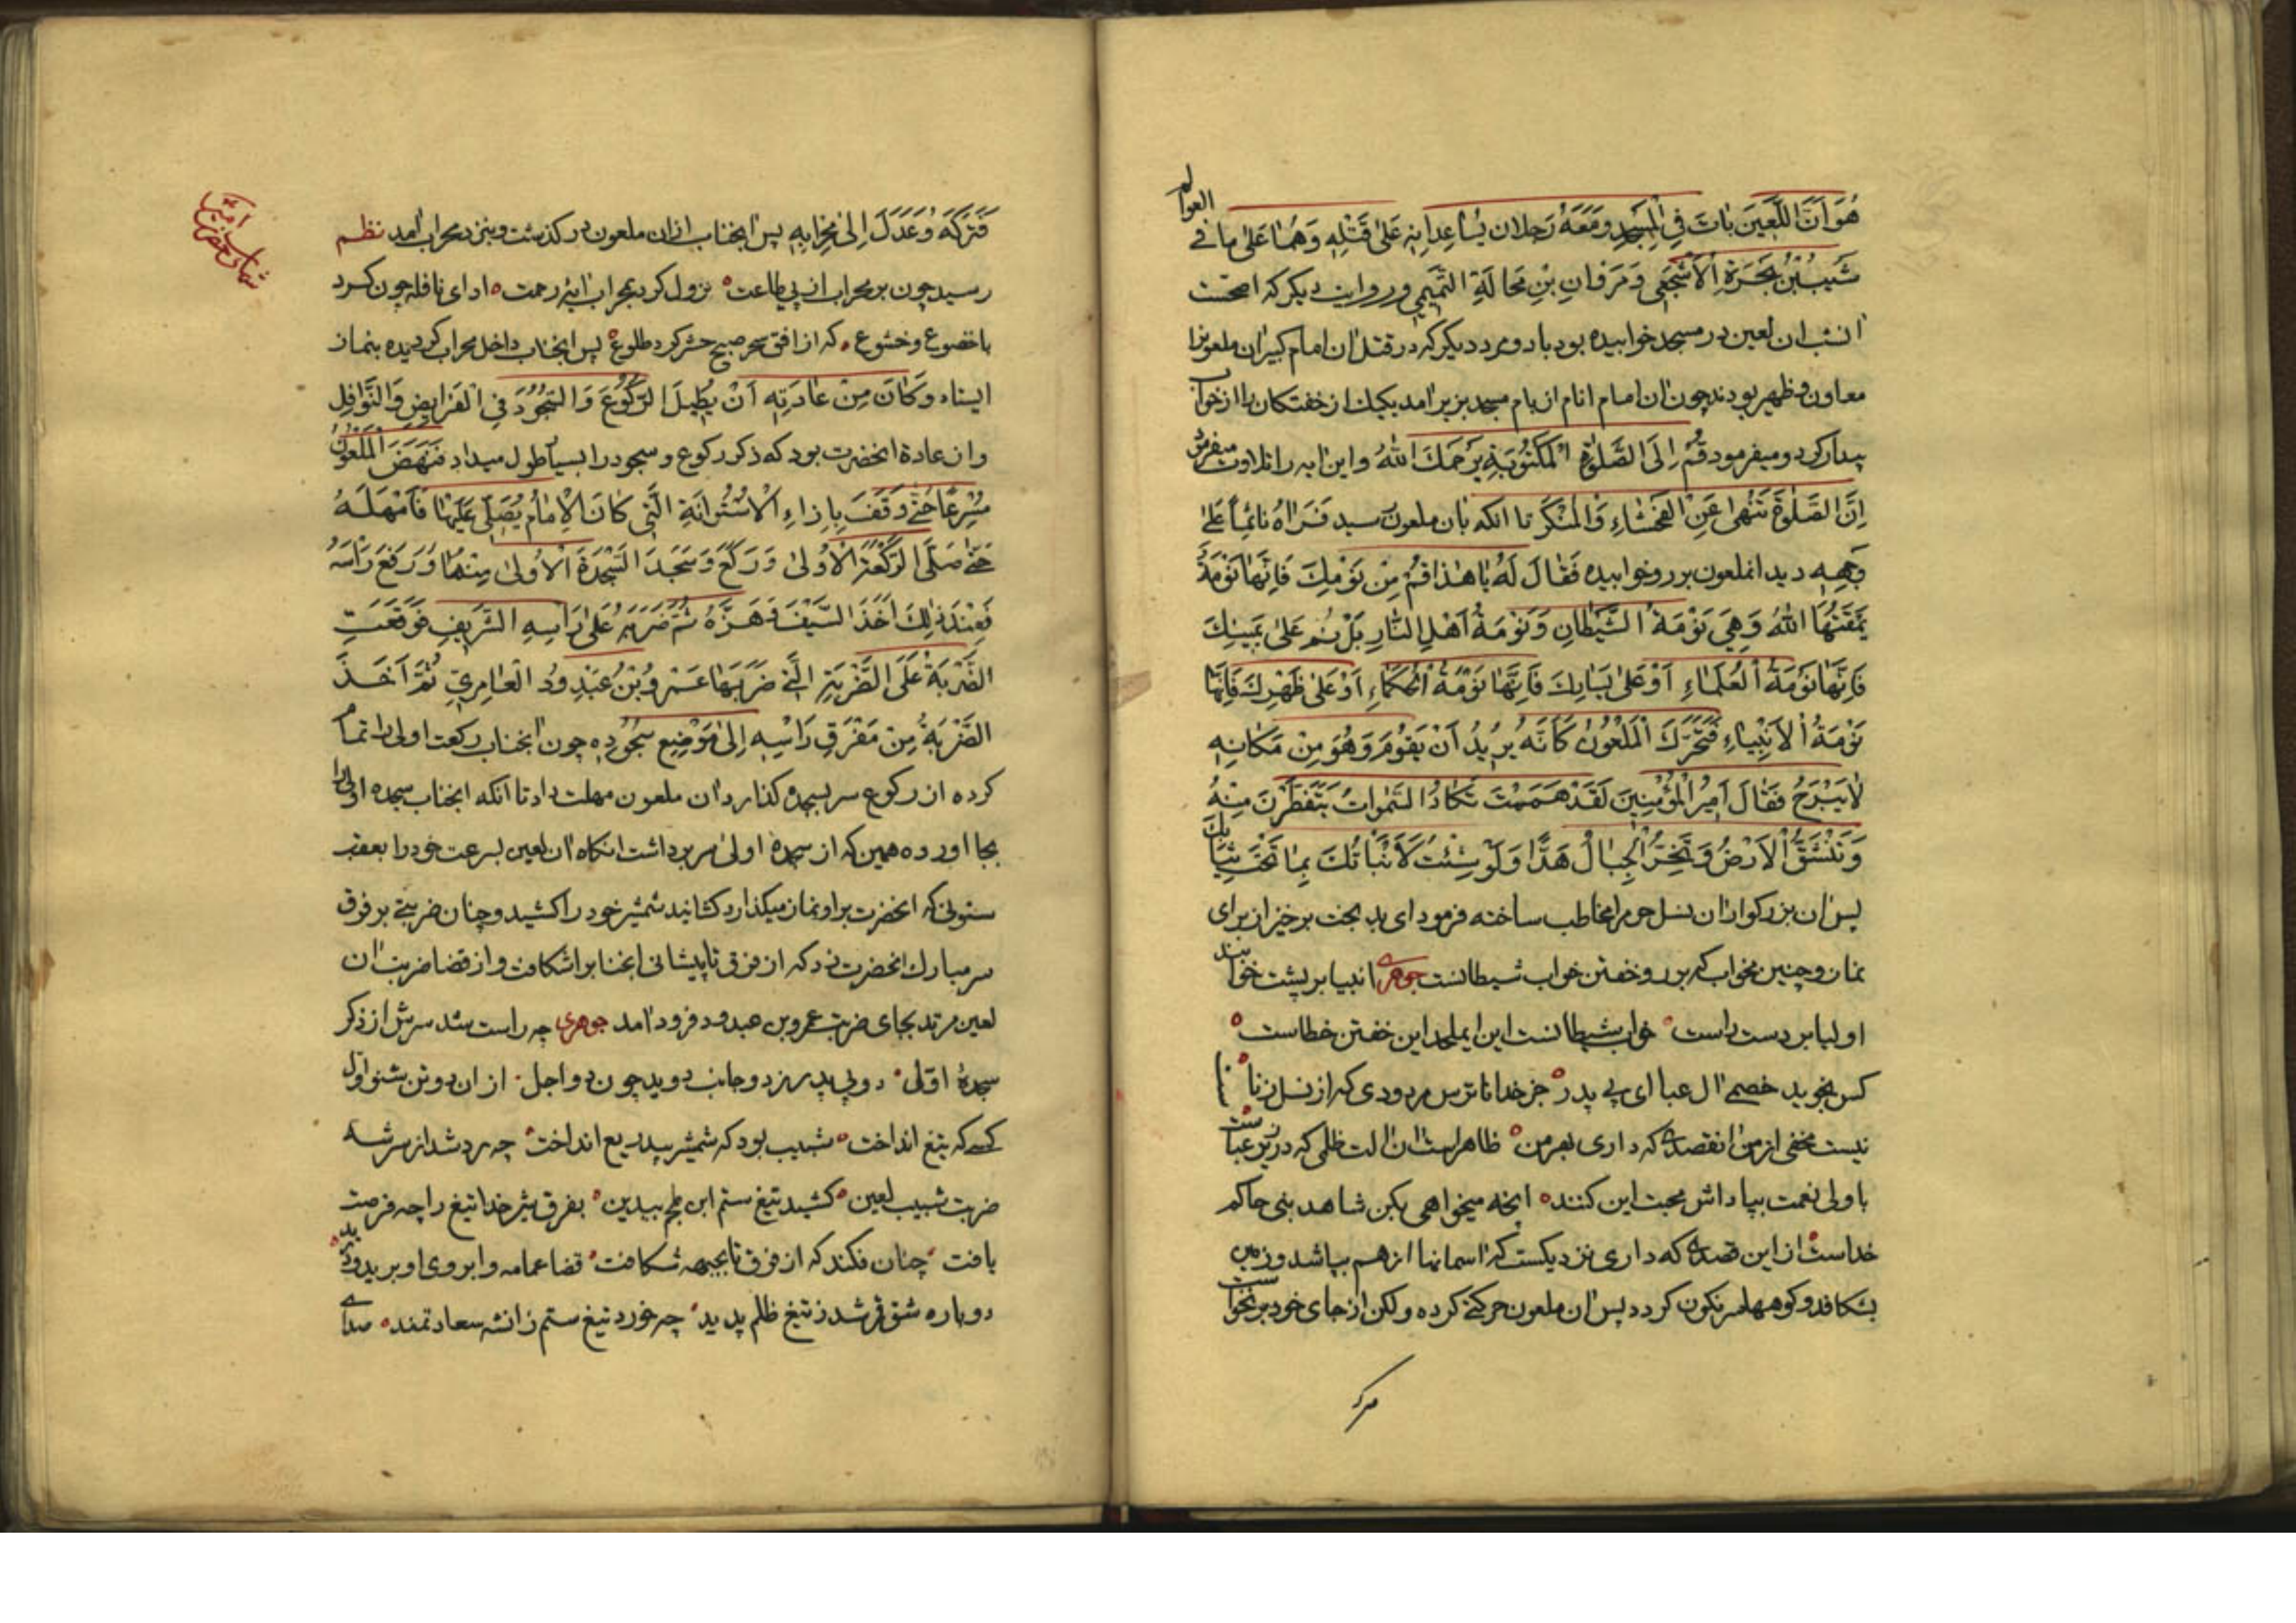 هُوَ اَنَّ اللَّعِينَ بَاتَ فِي الْمَسْجِدِ وَ مَعَهُ رَجُلانِ يُسَاعِدانِهِ عَلىٰ قَتْلِهِ وَ هُمَا عَلىٰ مَا فِي العوالم
شَبِيبُ بْنُ بَجَرَةَ الْاَشْجَعِي وَ مَرْدَانِ بْنِ مَجَالَةِ التَّمِيمِي و در روایت دیکر که اصحست
انشب ان لعین در مسجد خوابیده بود با دو مرد دیکر که در قتل ان امام کبیر ان ملعونرا
معاون و ظهیر بودند چون ان امام انام از بام مسجد بزیر امد یکیك از خفتکان را از خواب
بیدار کرد و میفرمود قُمْ اِلَى الصَّلوٰةِ الْمَكْتُوبَةِ يَرْحَمُكَ اللهُ و این ایه را تلاوت میفرمود
اِنَّ الصَّلوٰةَ تَنْهىٰ عَنِ الْفَحْشَاءِ وَ الْمُنْكَرِ تا انکه بان ملعون رسید فَرَاهُ نَائِماً عَلىٰ
وَجْهِهِ دید انملعون بر رو خوابیده فَقَالَ لَهُ يَا هٰذَا قُمْ مِنْ نَوْمِكَ فَاِنَّهَا نَوْمَةٌ
يَمْقَتُهَا اللهُ وَ هِيَ نَوْمَةُ الشَّيْطَانِ وَ نَوْمَةُ اَهْلِ النَّارِ بَلْ نُمْ عَلىٰ يَمِينِكَ
فَاِنَّهَا نَوْمَةُ الْعُلَمَاءِ اَوْ عَلىٰ يَسَارِكَ فَاِنَّهَا نَوْمَةُ الْحُكَمَاءِ اَوْ عَلىٰ ظَهْرِكَ فَاِنَّهَا
نَوْمَةُ الْاَنْبِيَاءِ فَتَحَرَّكَ الْمَلْعُونُ كَاَنَّهُ يُرِيدُ اَنْ يَقُومَ وَ هُوَ مِنْ مَكَانِهِ
لَا يَبْرَحُ فَقَالَ اَمِيرُ الْمُؤْمِنِينَ لَقَدْ هَمَمْتَ تَكَادُ السَّمٰوَاتُ يَتَفَطَّرْنَ مِنْهُ
وَ تَنْشَقُّ الْاَرْضُ وَ تَخِرُّ الْجِبَالُ هَدًّا وَ لَوْ شِئْتُ لَاَنْبَاْتُكَ بِمَا تَحْتَ ثِيَابِكَ
پس ان بزرکوار ان نسل حرام را مخاطب ساخته فرمود ای بد بخت برخیز از برای
نماز و چنین مخواب که بر رو خفتن خواب شیطانست جوهری انبیا بر پشت خوابند
اولیا بر دست راست خواب شیطانست این ایملحد این خفتن خطاست
کس نجوید خصمی ال عبا ای بی پدر جز خدا ناترس مردودی که از نسل زنا
نیست مخفی از من انقصدی که داری بهر من ظاهر است ان الت ظلمی که در زیر عباست
با ولی نعمت بپاداش محبت این کنند انچه میخواهی بکن شاهد بنی حاکم
خداست از این قصدی که داری نزدیکست که اسمانها از هم بپاشد و زمین
بشکافد و کوهها سرنکون کردد پس ان ملعون حرکتی کرده و لکن از جای خود برنخواست
فَتَرَكَهُ وَ عَدَلَ اِلىٰ مِحْرَابِهِ پس انجناب از ان ملعون در کذشت و بنزد محراب امد نظم
رسید چون بر محراب از پی طاعت نزول کرد بمحراب ایهٔ رحمت ادای نافله چون کرد
با خضوع و خشوع که از افق سحر صبح حشر کرد طلوع پس انجناب داخل محراب کردیده بنماز
ایستاد وَ كَانَ مِنْ عَادَتِهِ اَنْ يُطِيلَ الرُّكُوعَ وَ السُّجُودَ فِي الْفَرَايِضِ وَ النَّوَافِلِ
و از عادة انحضرت بود که ذکر رکوع و سجود را بسیار طول میداد فَنَهَضَ الْمَلْعُونُ
مُسْرِعًا حَتّىٰ وَقَفَ بِاِزَاءِ الْاُسْتُوَانَةِ الَّتِي كَانَ الْاِمَامُ يُصَلِّي عَلَيْهَا فَاَمْهَلَهُ
حَتّىٰ صَلَّى الرَّكْعَةَ الْاُولىٰ وَ رَكَعَ وَ سَجَدَ السَّجْدَةَ الْاُولىٰ مِنْهُمَا وَ رَفَعَ رَاْسَهُ
فَعِنْدَ ذٰلِكَ اَخَذَ السَّيْفَ وَ هَزَّهُ ثُمَّ ضَرَبَهُ عَلىٰ رَاْسِهِ الشَّرِيفِ فَوَقَعَتِ
الضَّرْبَةُ عَلَى الضَّرْبَةِ الَّتِي ضَرَبَهَا عَمْرُو بْنُ عَبْدِ وُدِّ الْعَامِرِيِّ ثُمَّ اَخَذَ
الضَّرْبَةُ مِنْ مَفْرَقِ رَاْسِهِ اِلىٰ مَوْضِعِ سُجُودِهِ چون انجناب رکعت اولی را تمام
کرده از رکوع سر بسجده کذارد ان ملعون مهلت داد تا انکه انجناب سجده اولی را
بجا اورده همین که از سجدهٔ اولی سر برداشت انکاه ان لعین بسرعت خود را بعقب
ستونی که انحضرت بر او نماز میکذارد کشانید شمشیر خود را کشید و چنان ضربتی بر فرق
سر مبارك انحضرت زد که از فرق تا پیشانی انجناب را شکافت و از قضا ضربت ان
لعین مرتد بجای ضربت عمرو بن عبدود فرود امد جوهری چه راست شد سرش از ذکر
سجدهٔ اوّلی دو بی پدر ز دو جانب دوید چون دو اجل از ان دو تن بشنو اول
کسی که تیغ انداخت شبیب بود که شمشیر بیدریع انداخت چه رد شد از سر شه
ضربت شبیب لعین کشید تیغ ستم ابن ملجم بیدین بفرق شیر خدا تیغ را چه فرصت
یافت چنان فکند که از فرق تا بجبهه شکافت قضا عمامه و ابروی او برید
دوباره شق قمر شد ز تیغ ظلم پدید چه خورد تیغ ستم زانشه سعادتمند صدای